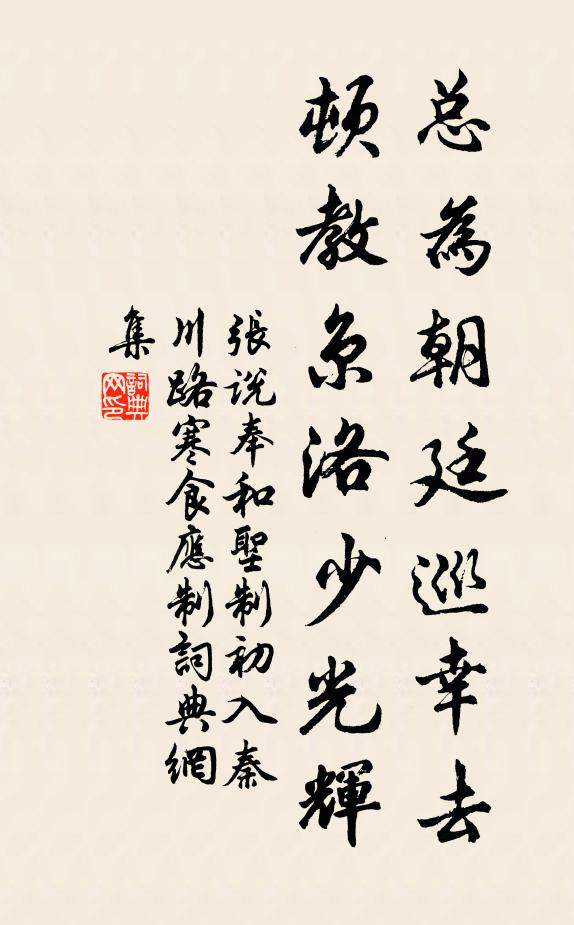 总為朝廷巡幸去
頓教京洛少光輝
張説奉和聖制初入秦
川路寒食應制詞典網
集
詞典
网印